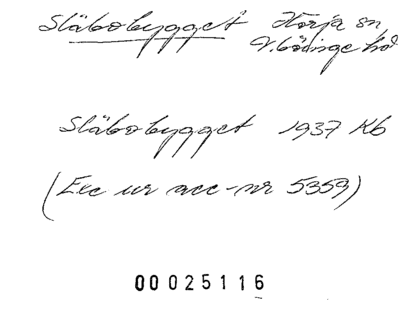 Släbobygget Hörja sn
V. Göinge hd
Släbobygget 1937 Kb
(Exc ur acc-nr 5359)
00025116